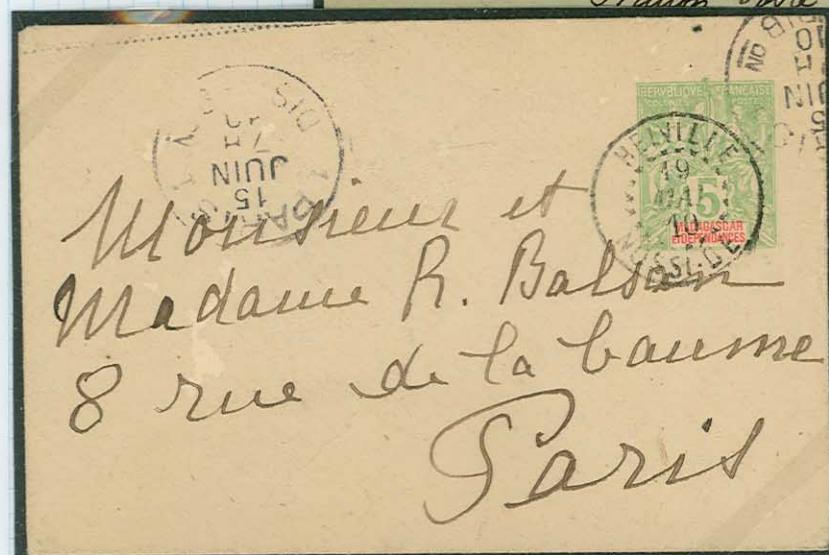 RÉPUBLIQUE FRANÇAISE
COLONIES POSTES
5
MADAGASCAR
ET DÉPENDANCES
HELVILLE
19
MAI
10
NOSSI-BÉ
15
JUIN
Monsieur et
Madame R. Balsan
8 rue de la baume
Paris